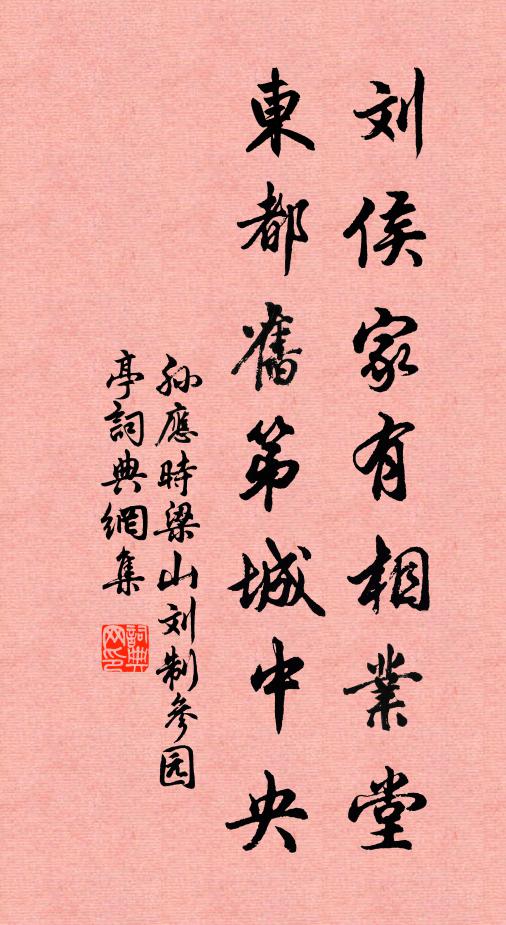 刘侯家有相業堂
東都舊第城中央
孙應時梁山刘制參园
亭詞典網集
詞典網印